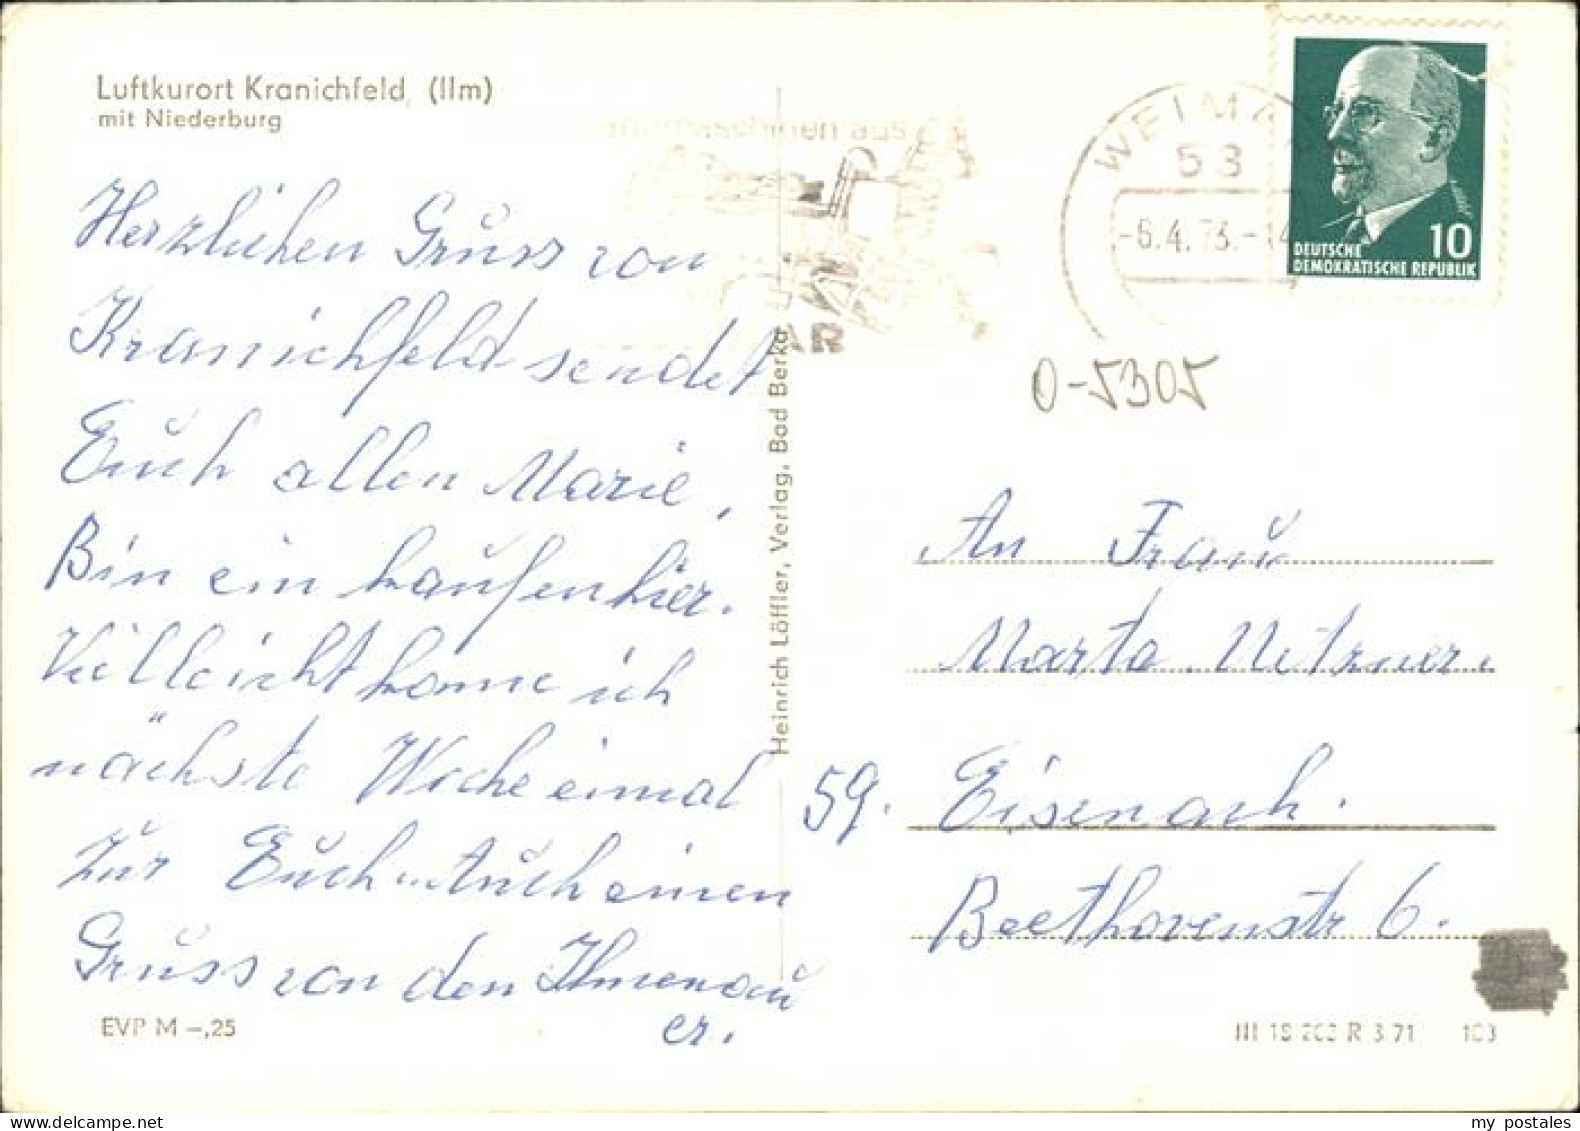 Luftkurort Kranichfeld, (Ilm)
mit Niederburg
Herzlichen Gruss von
Kranichfeld sendet
Euch allen Marie,
Bin ein kaufen hier.
Vielleicht komme ich
nächste Woche einmal
zur Euch. Auch einen
Gruss von den Ilmenau
er.
EVP M -,25
Heinrich Löffler, Verlag, Bad Berka
aus
AR
WEIMA
53
-6.4.73.-14
DEUTSCHE 10
DEMOKRATISCHE REPUBLIK
O-5305
An Frau
Marta Nitzner.
59. Eisenach.
Beethovenstr 6.
III 18 203 R 3 71 103
my postales